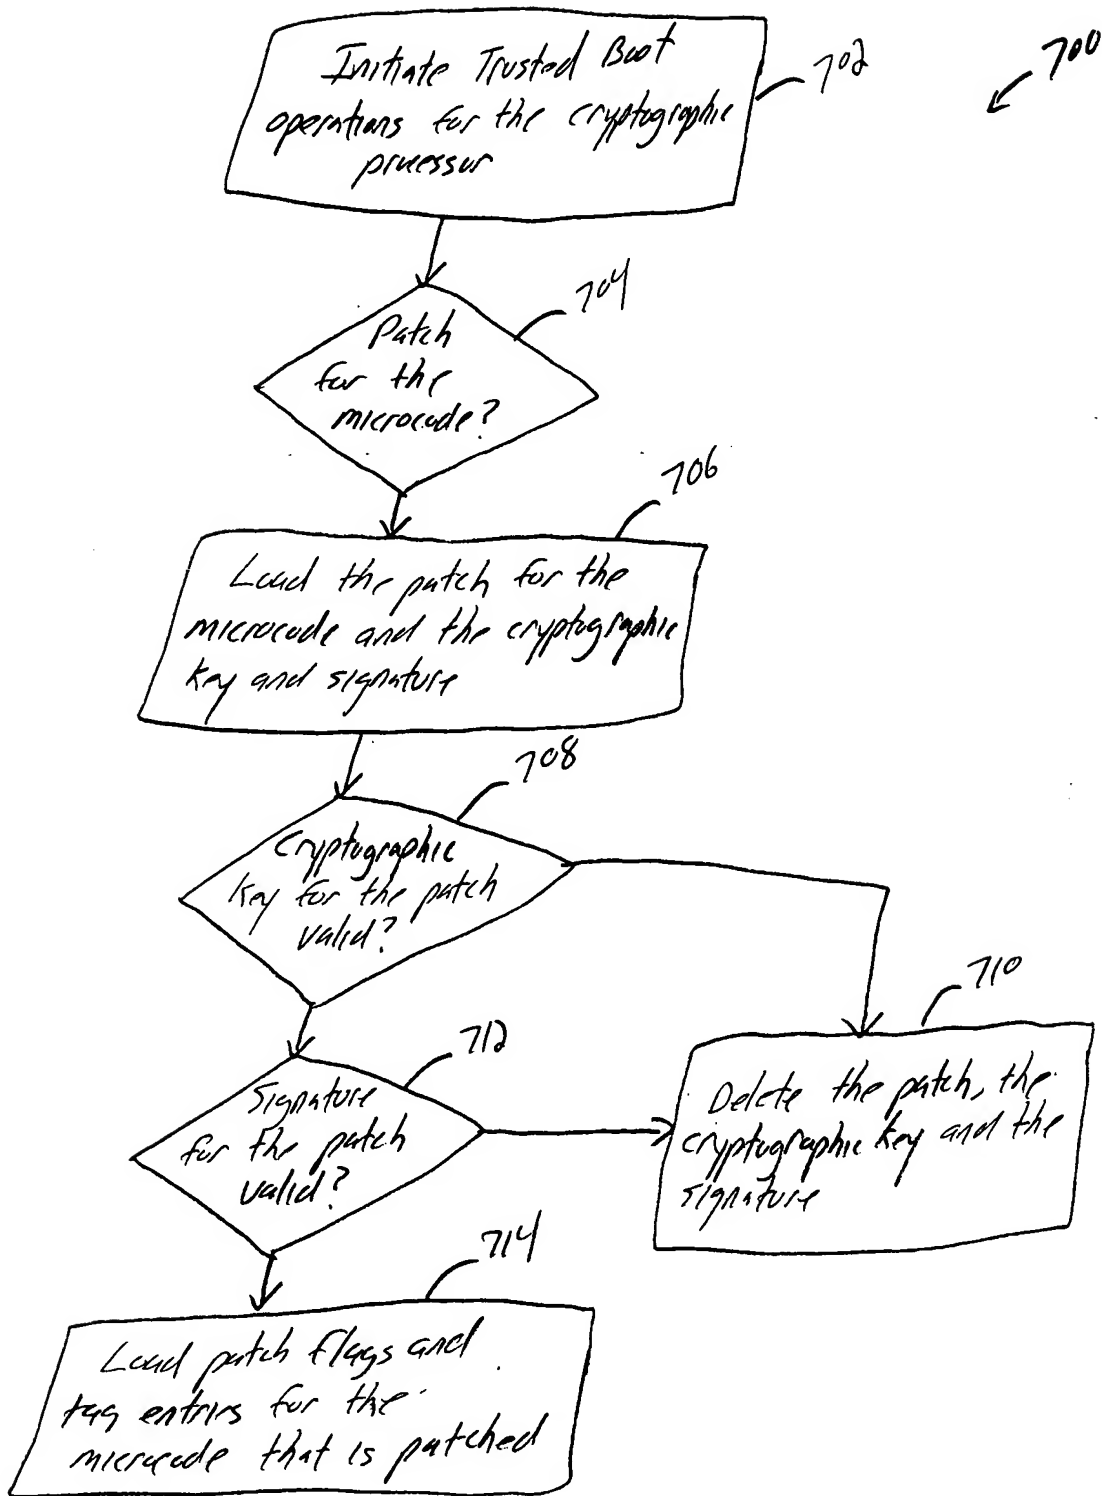 700
Initiate Trusted Boot
702
operations for the cryptographic
processor
704
Patch
for the
microcode?
706
Load the patch for the
microcode and the cryptographic
key and signature
708
Cryptographic
key for the patch
valid?
710
712
Signature
for the patch
valid?
Delete the patch, the
cryptographic key and the
signature
714
Load patch flags and
tag entries for the
microcode that is patched